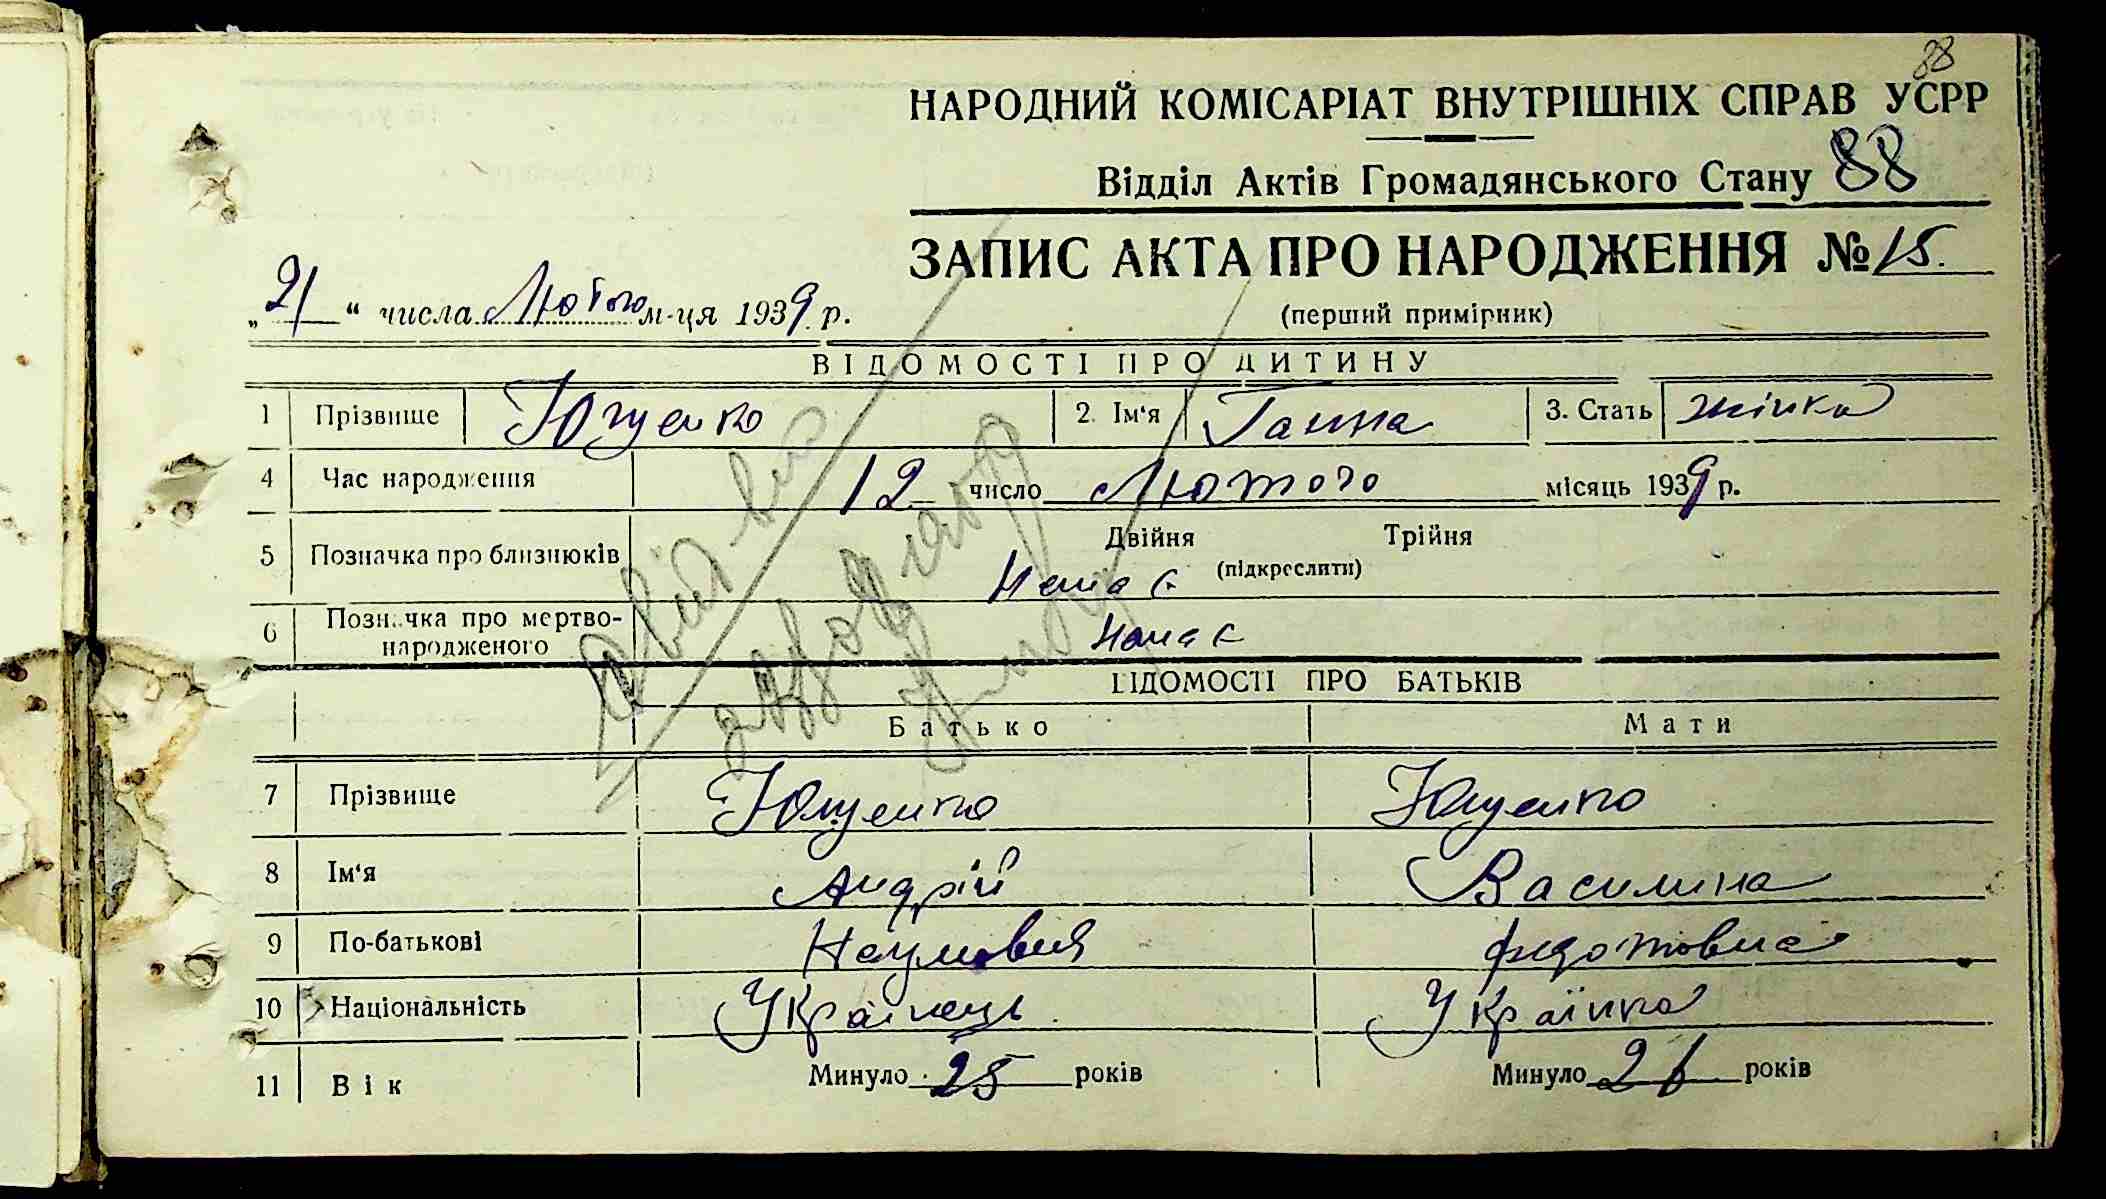 88
НАРОДНИЙ КОМІСАРІАТ ВНУТРІШНІХ СПРАВ УСРР
Відділ Актів Громадянського Стану 88
ЗАПИС АКТА ПРО НАРОДЖЕННЯ № 15.
„21“ числа Лютого м-ця 1939 р.
(перший примірник)
ВІДОМОСТІ ПРО ДИТИНУ
1 Прізвище Ющенко 2. Ім‘я Ганна 3. Стать жінка
4 Час народження 12 число Лютого місяць 1939 р.
5 Позначка про близнюків Двійня Трійня
(підкреслити)
Немає
6 Позначка про мертво-
народженого Немає
ВІДОМОСТІ ПРО БАТЬКІВ
Батько Мати
7 Прізвище Ющенко Ющенко
8 Ім‘я Андрій Василина
9 По-батькові Наумович Федотовна
10 Національність Українець Українка
11 Вік Минуло 25 років Минуло 26 років